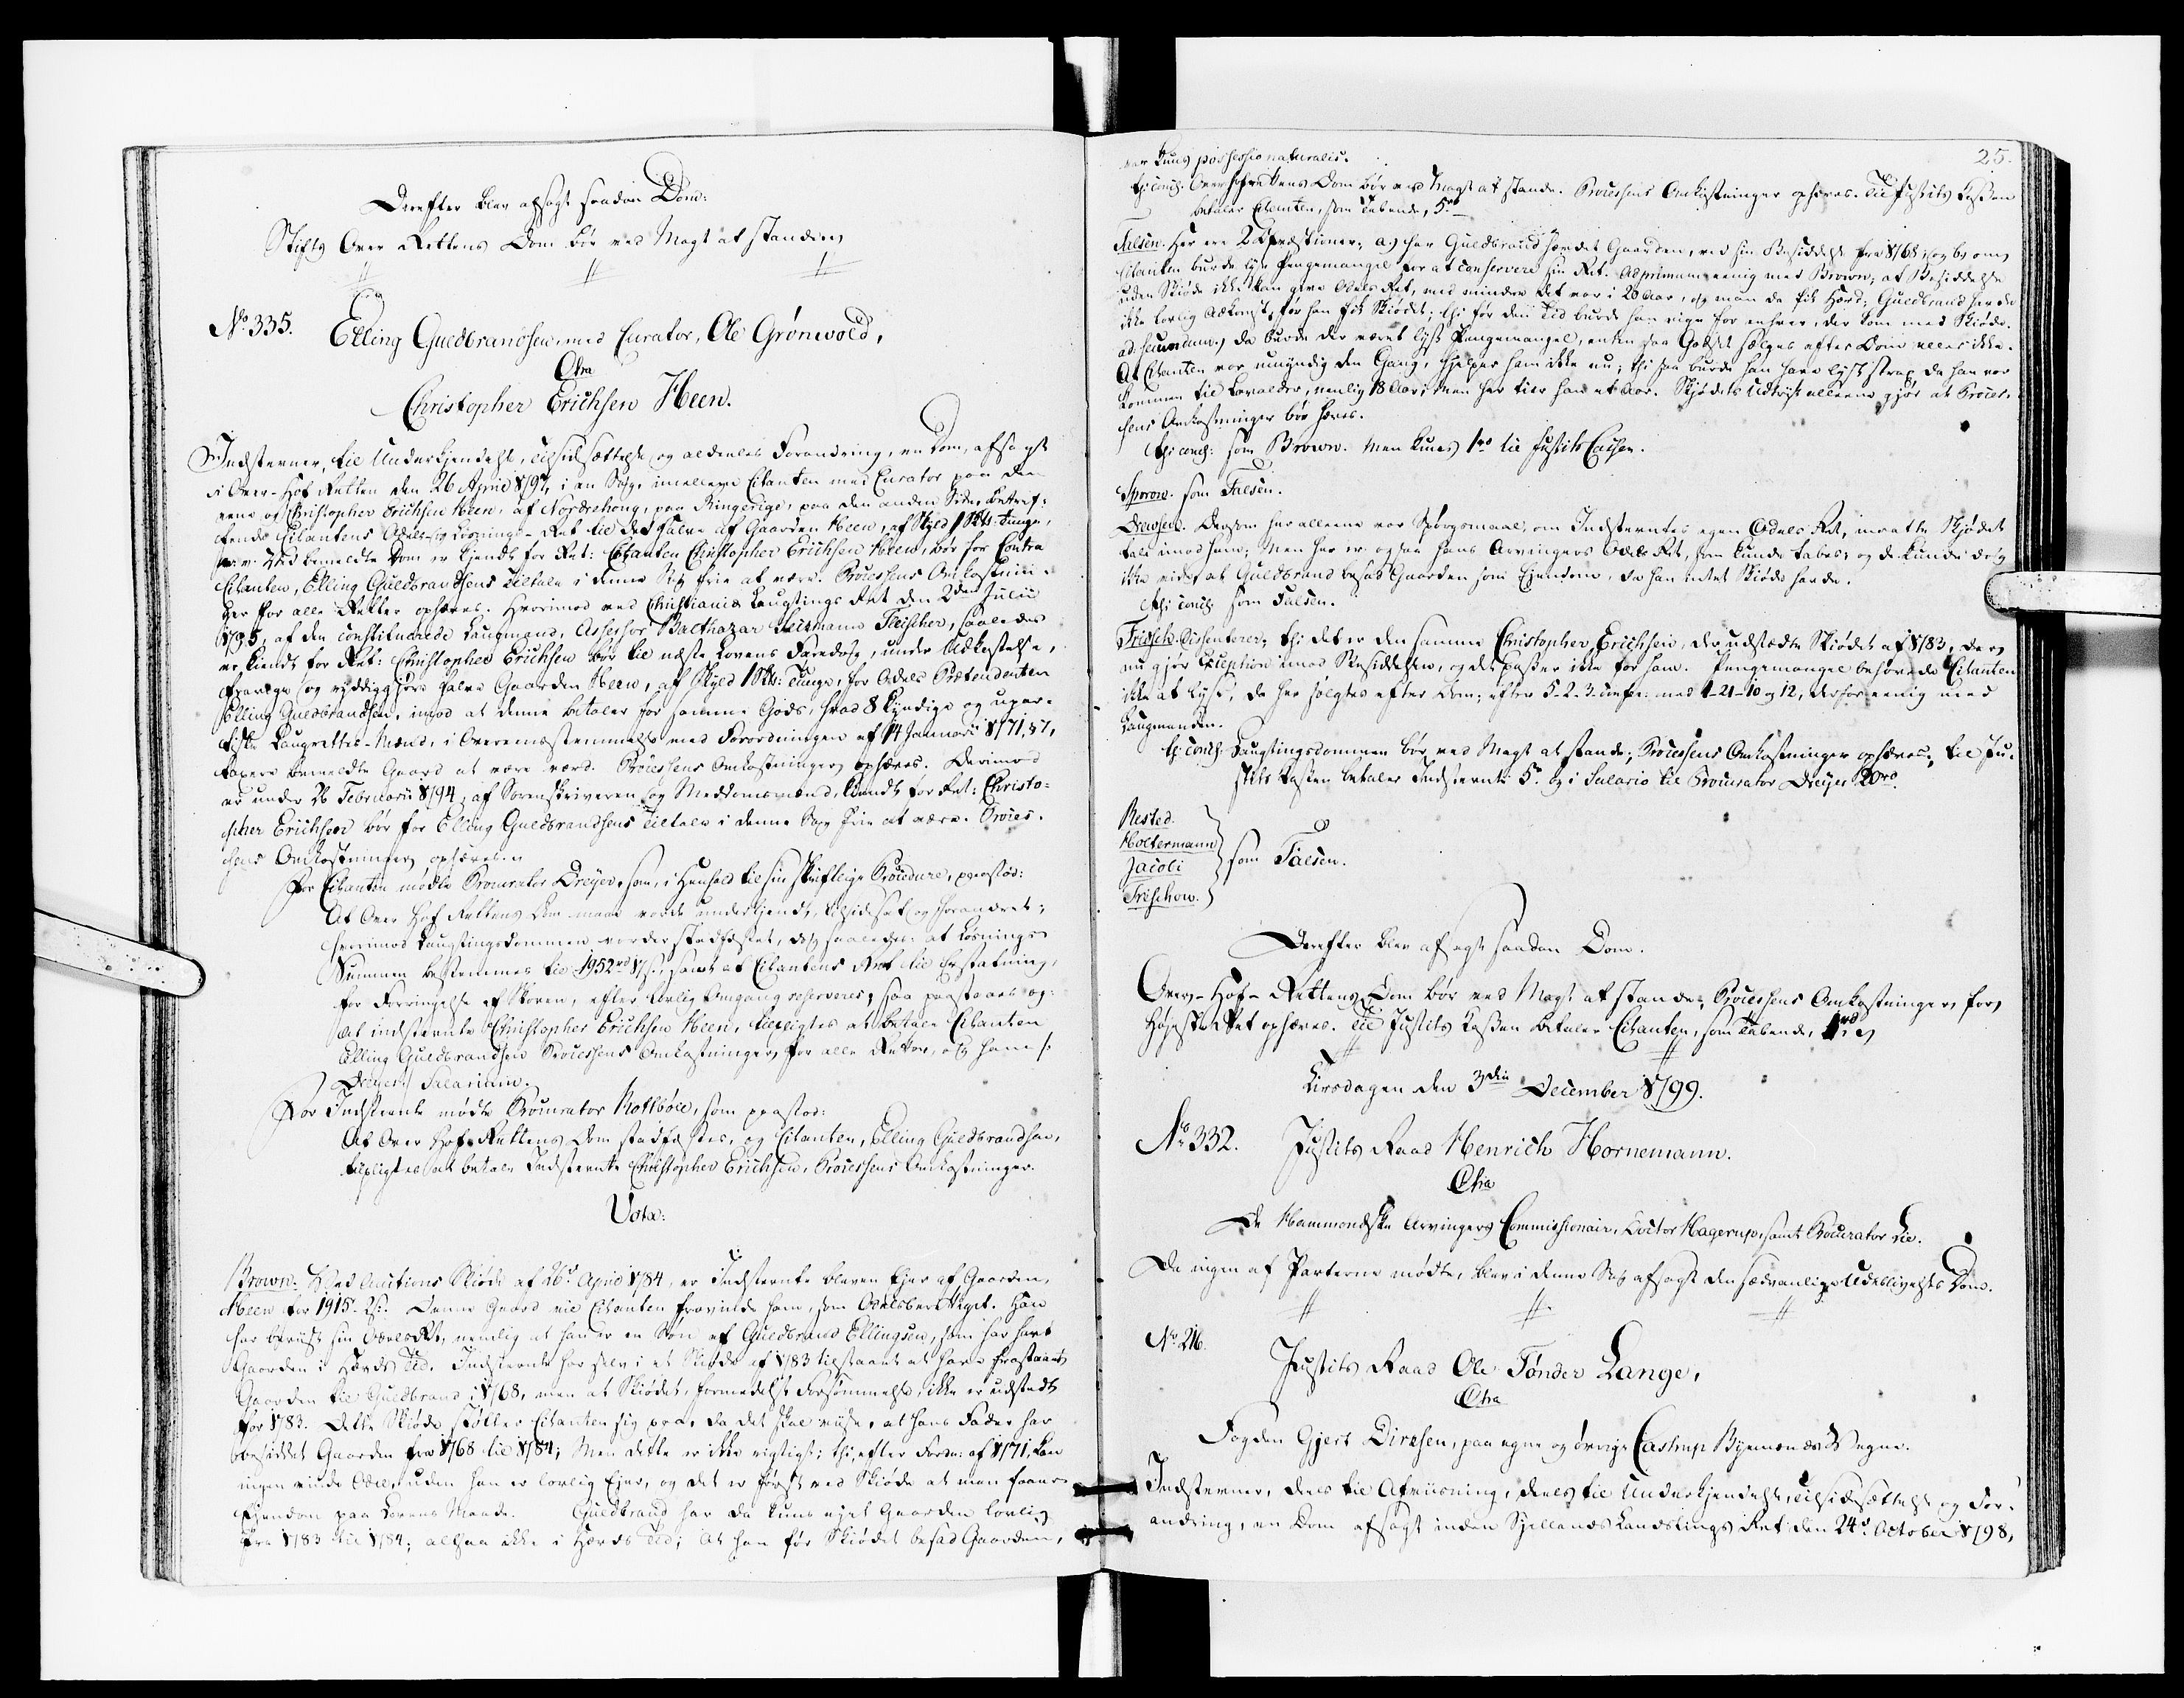 Derefter blev afsagt saadan Dom:
Stifts Over Rettens Dom bør ved Magt at stande.
No. 335. Elling Guldbrandsen, med Curator, Ole Grønvold,
Ctra
Christopher Erichsen Heen.
Indstevner, til Underkjendelse, Tilsidesættelse og aldeeles Forandring, en Dom, afsagt
i Over-Hof Retten den 26 April 1797, i en Sag, imellem Citanten med Curator paa den
eene og Christopher Erichsen Heen, af Nordrehoug, paa Ringerige, paa den anden Side, betref-
fende Citantens Odels- og Løsnings-Ret til det halve af Gaarden Heen, af Skyld 1 Skb. Tunge,
m. v. Ved bemeldte Dom er kjendt for Ret: Citanten Christopher Erichsen Heen, bør for Contra
Citanten, Elling Guldbrandsens Tiltale i denne Sag frie at være. Processens Omkostnin-
ger for alle Retter ophæves. Hvorimod ved Christiania Laugtings Ret den 2den Julii
1795, af den constituerede Laugmand, Assessor Balthazar Fleischer, saaledes
er kiendt for Ret: Christopher Erichsen bør til næste Lovens Faredag, under Udkastelse,
fravige og ryddiggjøre halve Gaarden Heen, af Skyld 1 Skb: Tunge, for Odels Prætendenten
Elling Guldbrandsen, imod at denne betaler for samme Gods, hvad 8 kyndige og upar-
tiske Laugrettes-Mænd, i Overensstemmelse med Forordningen af 14 Januarii 1771,
taxere bemeldte Gaard at være værd. Processens Omkostninger ophæves. Derimod
er under 26 Februarii 1794, af Sorenskriveren og Meddomsmænd, kiendt for Ret: Christo-
pher Erichsen bør for Elling Guldbrandsens Tiltale i denne Sag frie at være. Proces-
sens Omkostninger ophæves.
For Citanten mødte Procurator Dreyer, som, i Henhold til sin skriftlige Procedure, paastod:
At Over Hof Rettens Dom maae vorde underkjendt, tilsidesat og forandret;
hvorimod Laugtingsdommen vorder stadfæstet, dog saaledes: at Løsnings
Summen bestemmes til 1952 rd, samt at Citantens Ret til Erstatning,
for Forringelse af Skoven, efter lovlig Omgang reserveres; saa paastaaes og:
at indstevnte Christopher Erichsen Heen, tilpligtes at betale Citanten
Elling Guldbrandsen Processens Omkostninger for alle Retter, og ham /:
Dreyer :/ Salarium.
For Indstevnte mødte Procurator Rottbøll, som paastod:
At Over Hof-Rettens Dom stadfæstes, og Citanten, Elling Guldbrandsen,
tilpligtes at betale Indstevnte Christopher Erichsen, Processens Omkostninger.
Vota:
Brown: Ved Auctions Skiøde af 26d April 1784, er Indstevnte bleven Ejer af Gaarden
Heen for 1915. Denne Gaard vil Citanten fravinde ham, som Odelsberettiget. Han
har beviist sin Odels Ret, nemlig at han er en Søn af Guldbrand Ellingsen, som har havt
Gaarden i Hævds Tid. Indstevnte har selv i et Skiøde af 1783 tilstaaet at have frastaaet
Gaarden til Guldbrand i 1768, men at Skiødet, formedelst Forsømmelse, ikke er udstedt
før 1783. Dette Skiøde støtter Citanten sig paa, da det skal viise, at hans Fader har
besiddet Gaarden fra 1768 til 1784; Men dette er ikke rigtigt; thi, efter Forordn: af 1771, kan
ingen vinde Odel, uden han er lovlig Ejer, og det er først ved Skiøde at man faaer
Ejendom paa Lovens Maade. Guldbrand har da kuns ejet Gaarden lovlig
fra 1783 til 1784; altsaa ikke i Hævds Tid; At han før Skiødet besad Gaarden,
25.
var kuns possessio naturalis.
thi conch: Overhofrettens Dom bør ved Magt at stande. Processens Omkostninger ophæves. Til Justits Cassen
betaler Citanten, som Tabende, 5 rd
Falsen. Her ere 2 Qvæstioner; a) har Guldbrand hævdet Gaarden, ved sin Besiddelse fra 1768; og b) om
Citanten burde lyse Pengemangel for at conservere sin Ret. Ad primum eenig med Brown; at Besiddelse
uden Skiøde ikke kan give Odels Ret, med mindre det var i 20 Aar, og man da fik Hævd; Guldbrand havde
ikke lovlig Adkomst, før han fik Skiødet; thi før den Tid burde han vige for enhver, der kom med Skiøde.
ad secundum) da burde der været lyst Pengemangel, enten saa Godset sælges efter Dom eller ikke.
At Citanten var umyndig den Gang, hjelper ham ikke nu; thi saa burde han have lyst strax da han var
kommen til Lavalder, nemlig 18 Aar; Men her tier han et Aar. Skjødets Udtryk alleene gjør at Proces-
sens Omkostninger bør hæves.
thi conch: som Brown. Men kuns 1 rd til Justits Cassen.
Sporon. som Falsen.
Drewsen. Dersom her alleene var Spørgsmaal, om Indstevntes egen Odels Ret, maatte Skjødet
tale imod ham; Men her er ogsaa hans Arvingers Odels Ret, som kunde tabes; og de kunde dog
ikke vide at Guldbrand besad Gaarden som Ejendom, da han intet Skiøde havde.
thi conch: som Falsen.
Treschow dissenterer; thi det er den samme Christopher Erichsen, der udstedte Skiødet af 1783, der
nu gjør Exception imod Besiddelsen, og det passer ikke for ham. Pengemangel behøvede Citanten
ikke at lyse, da her solgtes efter Dom; efter 5-2-3. confer: med 1-21-10 og 12, Derfor eenig med
Laugmanden.
thi conch: Laugtingsdommen bør ved Magt at stande; Processens Omkostninger ophæves, til Ju-
stits Cassen betaler Indstevnte 5 rd og i Salario til Procurator Dreyer 20 rd.
Rested.
Koltermann
Jacobi
Treschow.
som Falsen.
Derefter blev afsagt saadan Dom.
Over-Hof-Rettens Dom bør ved Magt at stande; Processens Omkostninger for
Højeste Ret ophæves. Til Justits Cassen betaler Citanten, som Tabende, 1 rd.
Tirsdagen den 3die December 1799.
No. 332. Justits Raad Henrich Hornemann.
Ctra
De Hammondske Arvingers Commissionair, Doctor Hagerup, samt Procurator Lie.
Da ingen af Parterne mødte, blev i denne Sag afsagt den sædvanlige Udeblivelses Dom.
No. 216.
Justits Raad Ole Tønder Lange,
Ctra
Fogden Gjert Dirchsen, paa egne og øvrige Castrup Byemænds Vegne.
Indstevner, deels til Afviisning, deels til Underkjendelse, Tilsidesættelse og For-
andring, en Dom afsagt inden Sjellands Landstings Ret den 24d October 1798,